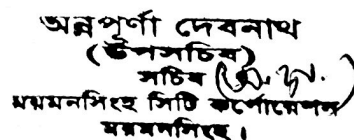 অন্নপূর্ণা দেবনাথ
(উপসচিব)
সচিব (অঃ দাঃ)
ময়মনসিংহ সিটি কর্পোরেশন
ময়মনসিংহ।